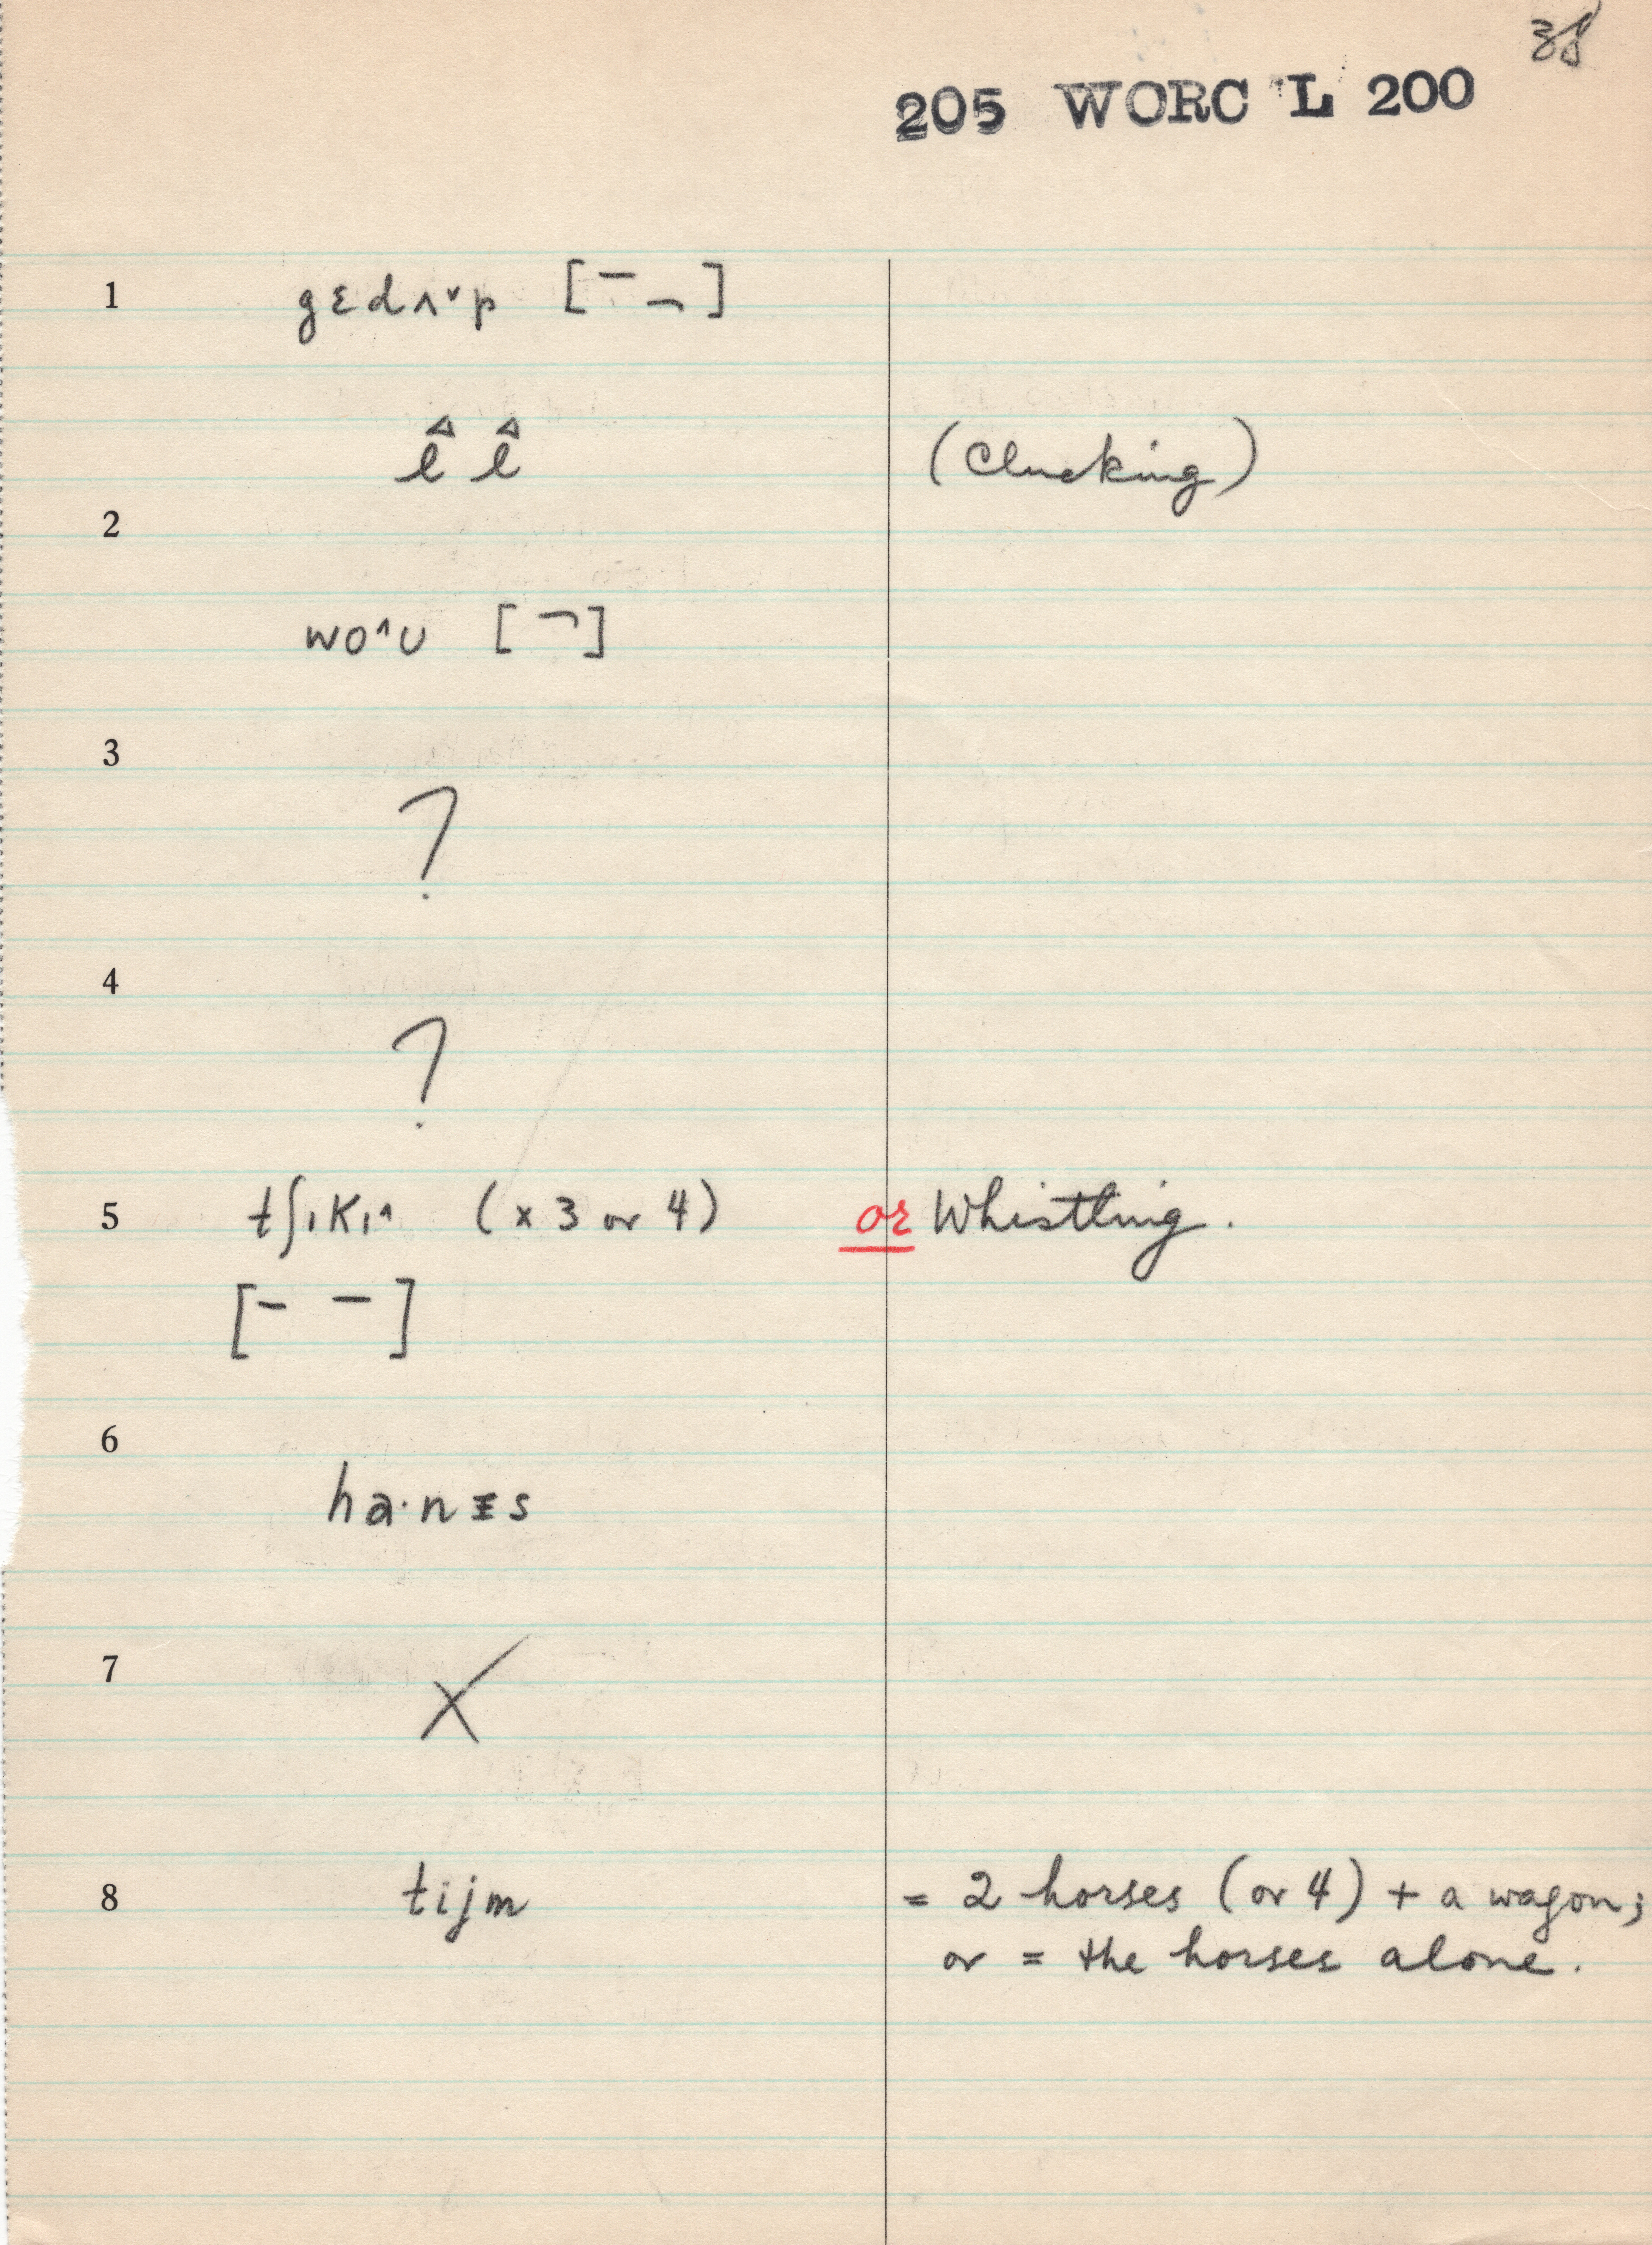 38
205 WORC L 200
1 gɛdʌ˅p [¯ ¬]
l̂ l̂ (Clucking)
2
wo^ʊ [¬]
3
?
4
?
5 tʃıKı^ (x 3 or 4) or Whistling.
[- -]
6
ha·nɪs
7
X
8 tijm = 2 horses (or 4) + a wagon;
or = the horses alone.